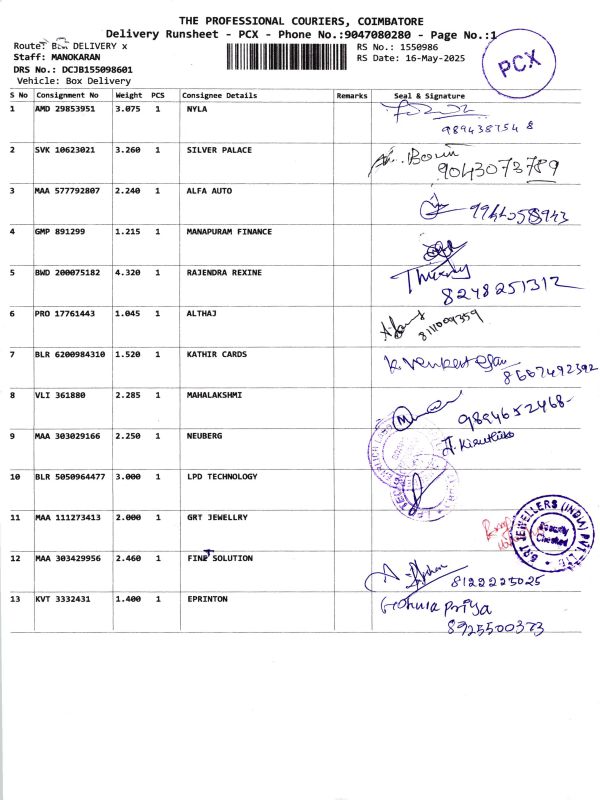 THE PROFESSIONAL COURIERS, COIMBATORE
Delivery Runsheet - PCX - Phone No.:9047080280 - Page No.:1
Route: DELIVERY x
RS No.: 1550986
Staff: MANOKARAN
RS Date: 16-May-2025
DRS No.: DCJB155098601
Vehicle: Box Delivery
PCX
S No Consignment No Weight PCS Consignee Details Remarks Seal & Signature
1 AMD 29853951 3.075 1 NYLA
2 SVK 10623021 3.260 1 SILVER PALACE
9043073789
3 MAA 577792807 2.240 1 ALFA AUTO
4 GMP 891299 1.215 1 MANAPURAM FINANCE
5 BWD 200075182 4.320 1 RAJENDRA REXINE
8248251312
6 PRO 17761443 1.045 1 ALTHAJ
8111009359
7 BLR 6200984310 1.520 1 KATHIR CARDS
K. Venkatesan
8667492392
8 VLI 361880 2.285 1 MAHALAKSHMI
9894652468
9 MAA 303029166 2.250 1 NEUBERG
10 BLR 5050964477 3.000 1 LPD TECHNOLOGY
11 MAA 111273413 2.000 1 GRT JEWELLRY
GRT JEWELLERS (INDIA) PVT. LTD.
Security
Checked
12 MAA 303429956 2.460 1 FINE SOLUTION
8122225025
13 KVT 3332431 1.400 1 EPRINTON
Priya
8925500373